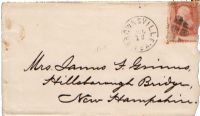 BROOKSVILLE
Mrs. James F. Grimes,
Hillsborough Bridge,
New Hampshire.